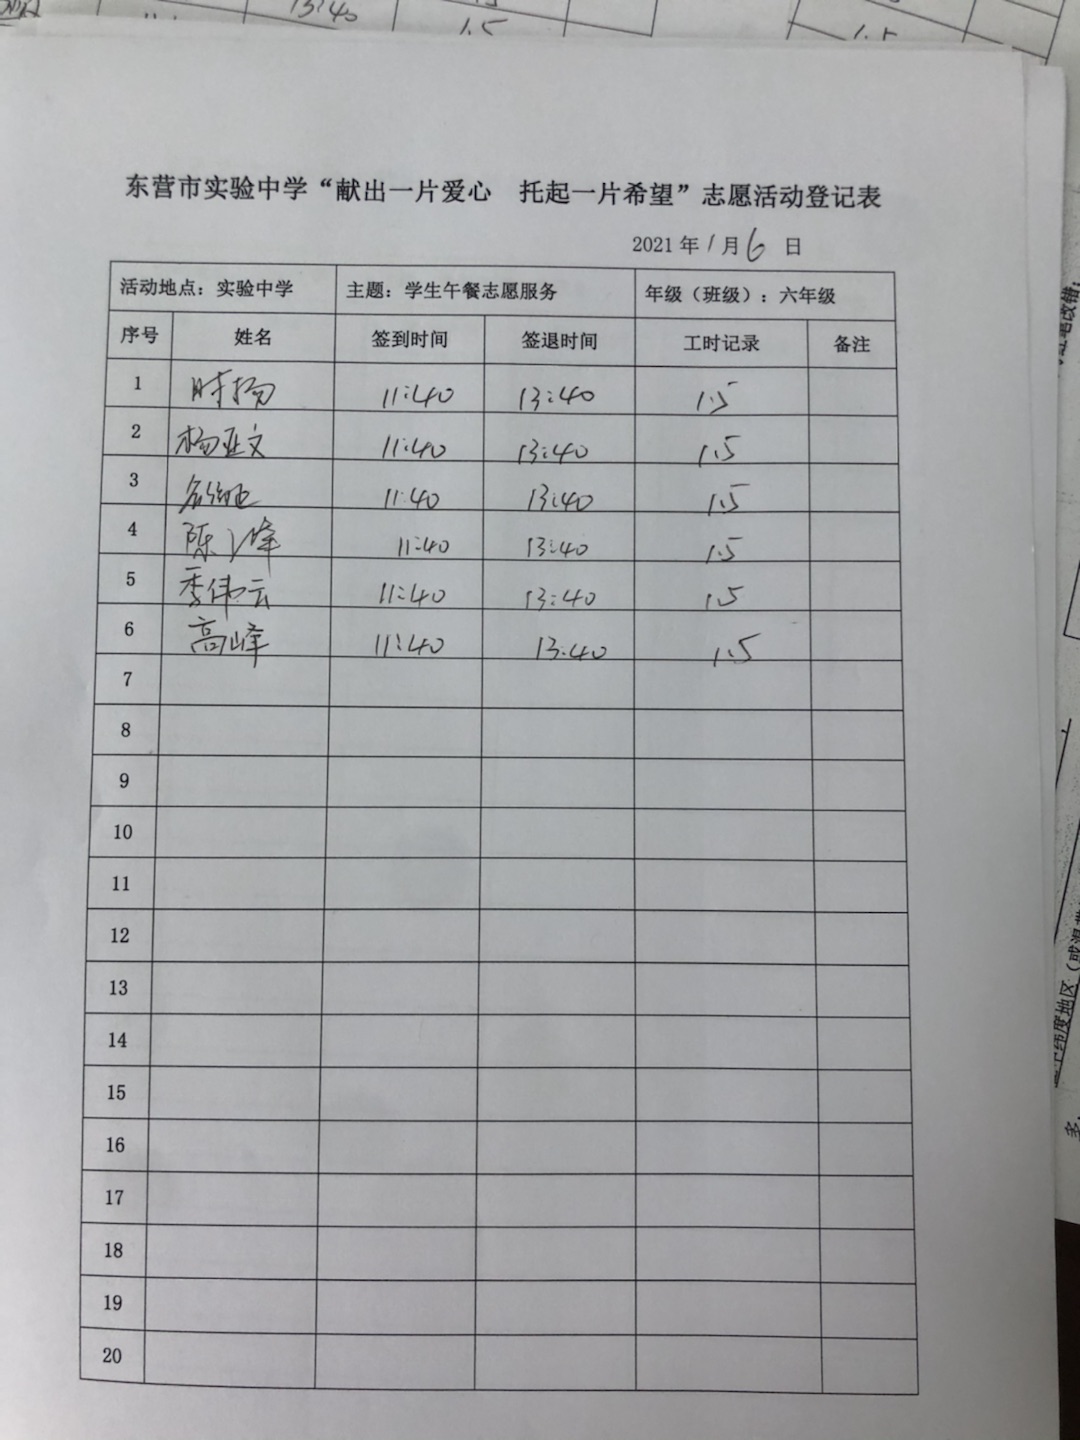 13:40
1.5
1.5
东营市实验中学“献出一片爱心 托起一片希望”志愿活动登记表
2021年1月6日
活动地点：实验中学 主题：学生午餐志愿服务 年级（班级）：六年级
序号 姓名 签到时间 签退时间 工时记录 备注
1 时扬 11:40 13:40 1.5
2 杨亚文 11:40 13:40 1.5
3 11:40 13:40 1.5
4 陈 峰 11:40 13:40 1.5
5 季伟云 11:40 13:40 1.5
6 高峰 11:40 13:40 1.5
7
8
9
10
11
12
13
14
15
16
17
18
19
20